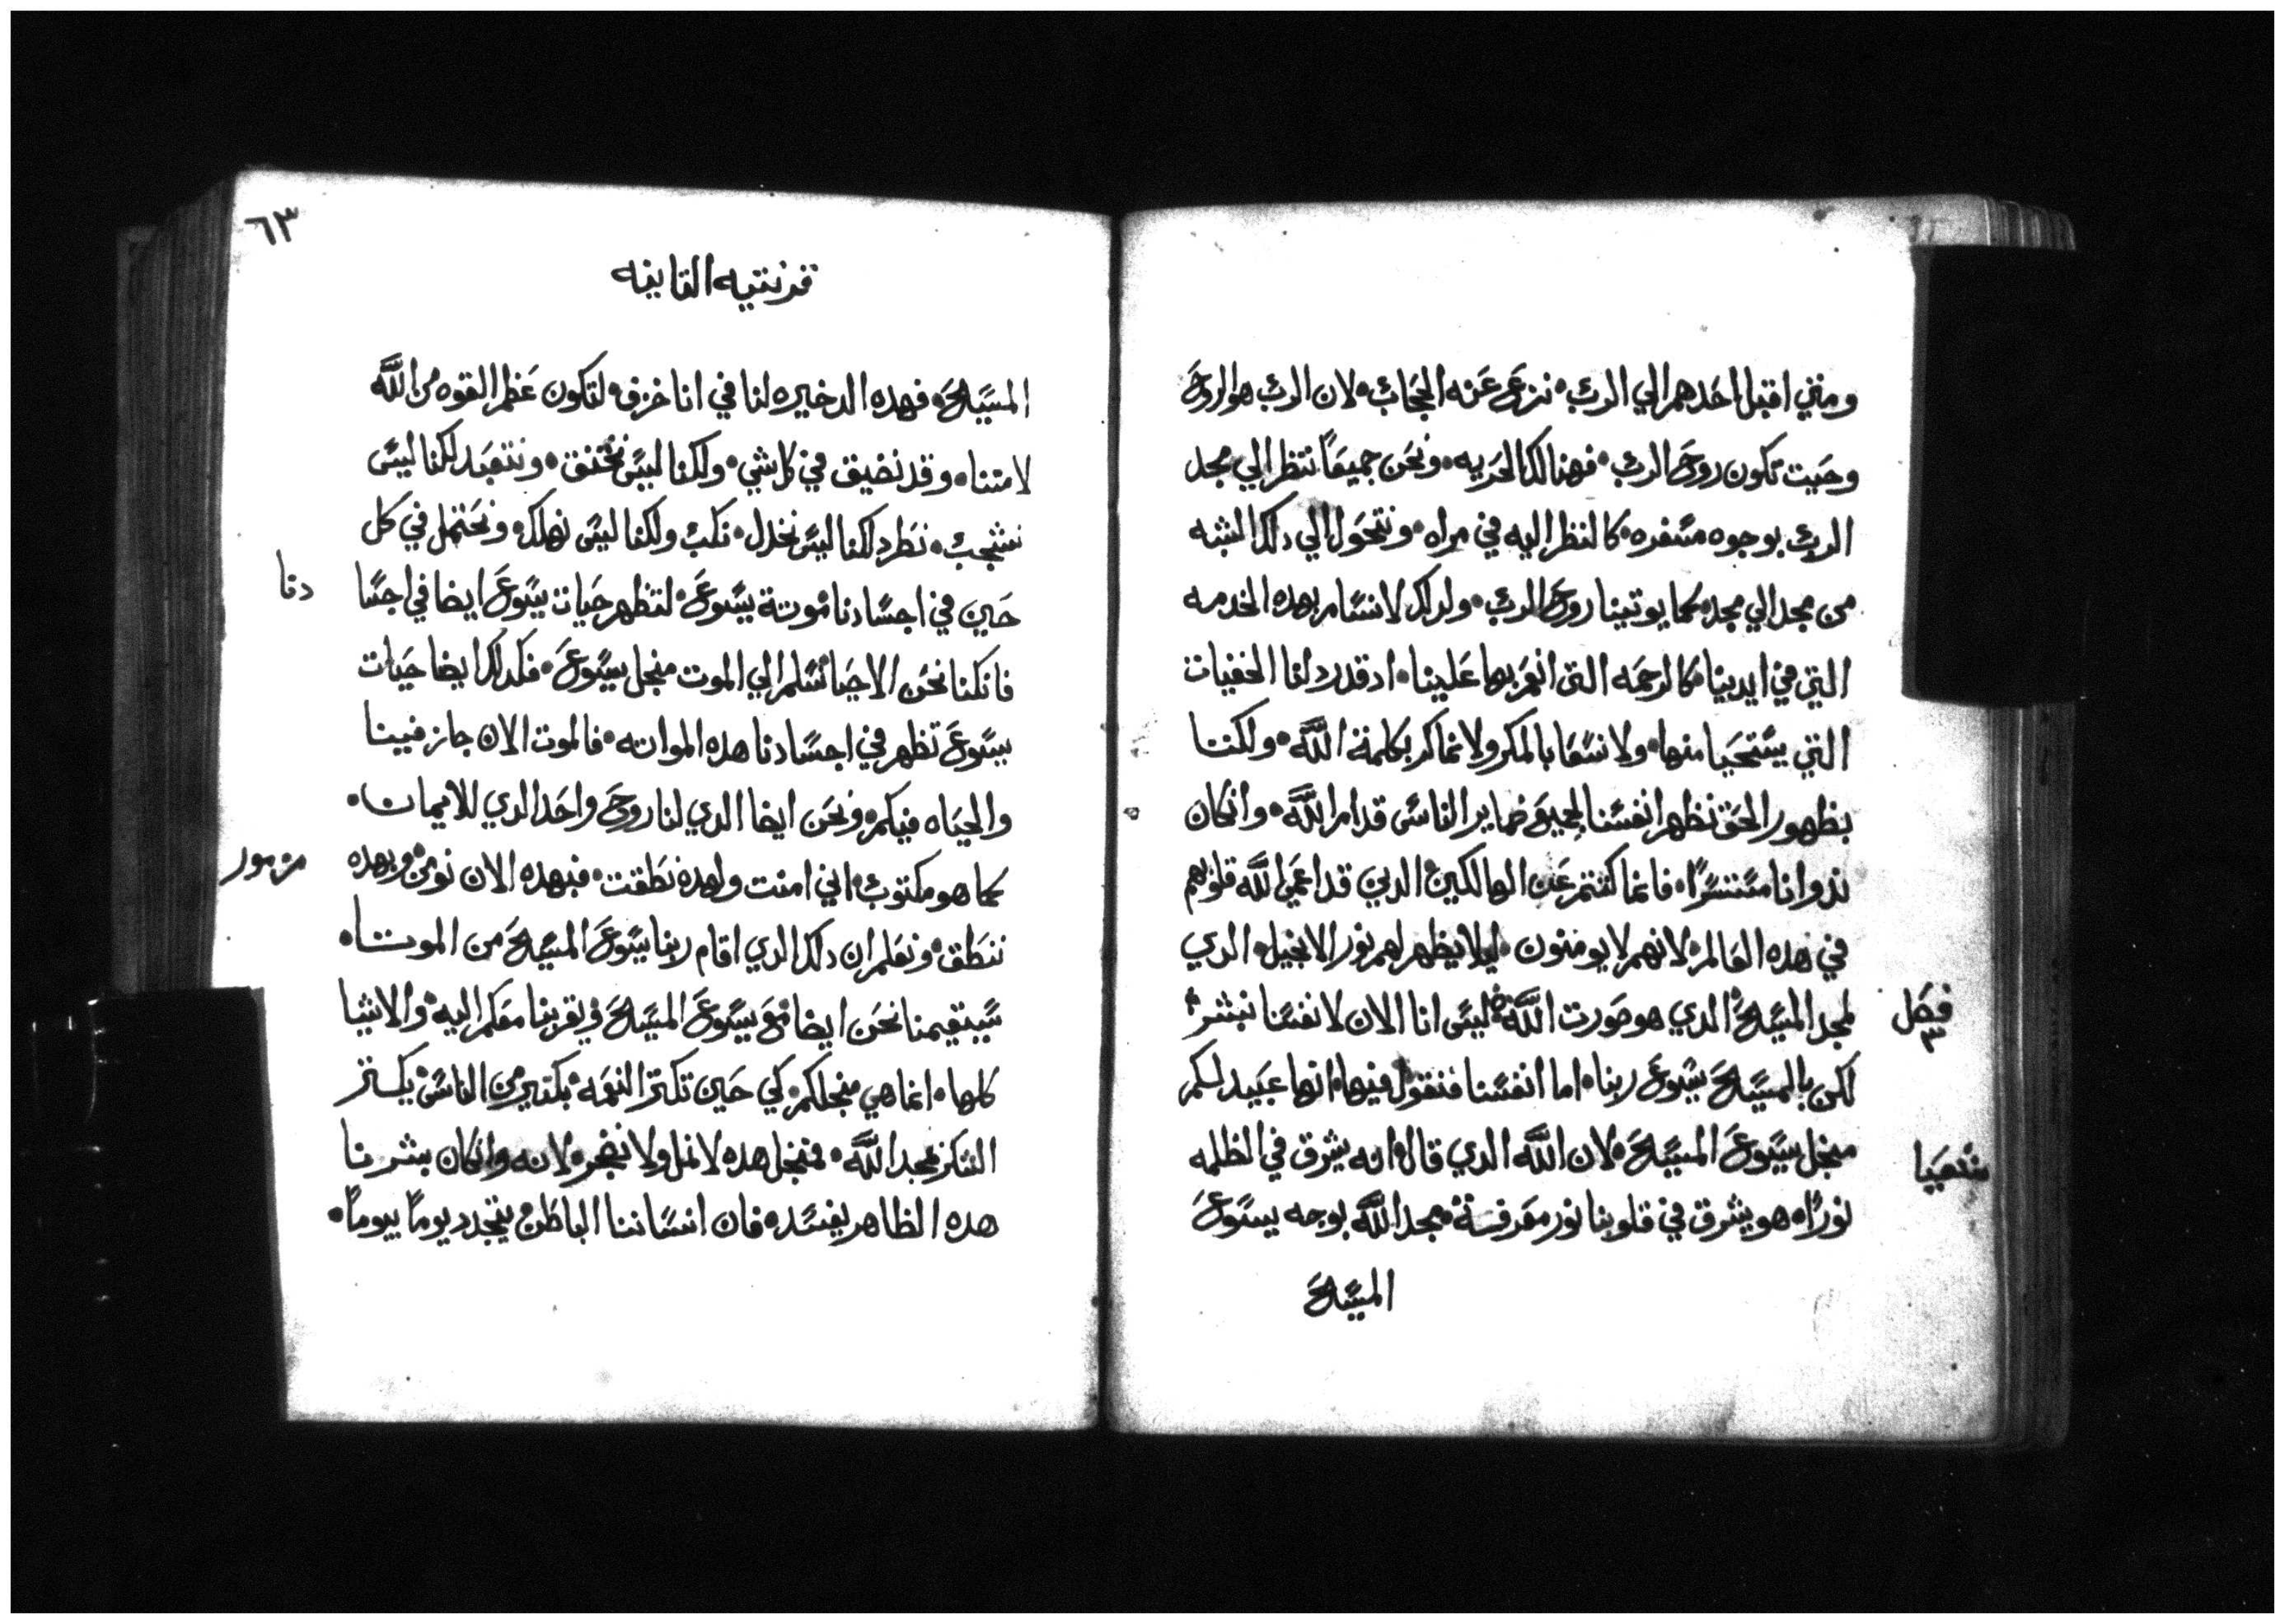 ومتي اقبل احدهم الي الرب نزع عنه الحجاب لان الرب هو الروح
وحيت تكون روح الرب فهنالك الحريه ونحن جميعاً ننظر الي مجد
الرب بوجوه مسفره كالنظر اليه في مراه ونتحول الي دلك الشبه
من مجد الي مجد كما يوتينا روح الرب ولدلك لا نسام بهده الخدمه
التي في ايدينا كالرحمه التي انعم بها علينا ادقد ردلنا الخفيات
التي يستحيا منها ولا نسعا بالمكر ولا نماكر بكلمة اللّٰه ولكننا
بظهور الحق نظهر انفسنا لجميع ضماير الناس قدام اللّٰه وانكان
ندوانا مستتراً فانما كتتم عن الهالكين الدين قد اعمي اللّٰه قلوبهم
في هده العالم لانهم لا يومنون ليلا يظهر لهم نور الانجيل الدي
فصل ٣
لمجد المسيح الدي هو صورت اللّٰه ليس انا الان لانفسنا نبشر
لكن بالمسيح يسوع ربنا اما انفسنا فنقول فيها انها عبيد لكم
منجل يسوع المسيح لان اللّٰه الدي قال انه يشرق في الظلمه
شعيا
نوراً هو يشرق في قلوبنا نور معرفة مجد اللّٰه بوجه يسوع
المسيح
٦٣
قرنتيه التانيه
المسيح فهده الدخيره لنا في انا خزف لتكون عظم القوه من اللّٰه
لا منا وقد نضيق في كل شي ولكنا ليس نختنق ونتعبد لكنا ليس
نشجب نطرد لكنا ليس نخدل نكب ولكنا ليس نهلك ونحتمل في كل
حين في اجسادنا موتة يسوع لتظهر حيات يسوع ايضا في اجسا
دنا
فانكنا نحن الاحيا نسلم الي الموت منجل يسوع فكدلك ايضا حيات
يسوع تظهر في اجسادنا هده المواته فالموت الان جاز فيينا
والحياه فيكم ونحن ايضا الدي لنا روح واحد الدي للايمان
مزمور
كما هو مكتوب اني امنت ولهده نطقت فبهده الان نومن وبهده
ننطق ونعلم ان دلك الدي اقام ربنا يسوع المسيح من الموتا
سيقيمنا نحن ايضا مع يسوع المسيح ويقربنا معكم اليه والاشيا
كلها انما هي منجلكم كي حين تكتر النعمه بكتير من الناس يكتر
الشكر لمجد اللّٰه فمنجل هده لا نمل ولا نضجر لانه وانكان بشرنا
هده الظاهر يفسد فان انساننا الباطن يتجدد يوماً بيوماً